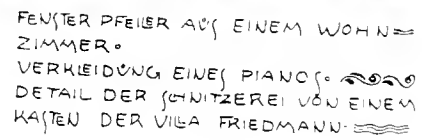 FENSTER PFEILER AUS EINEM WOHN=
ZIMMER.
VERKLEIDUNG EINES PIANOS.
DETAIL DER SCHNITZEREI VON EINEM
KASTEN DER VILLA FRIEDMANN.